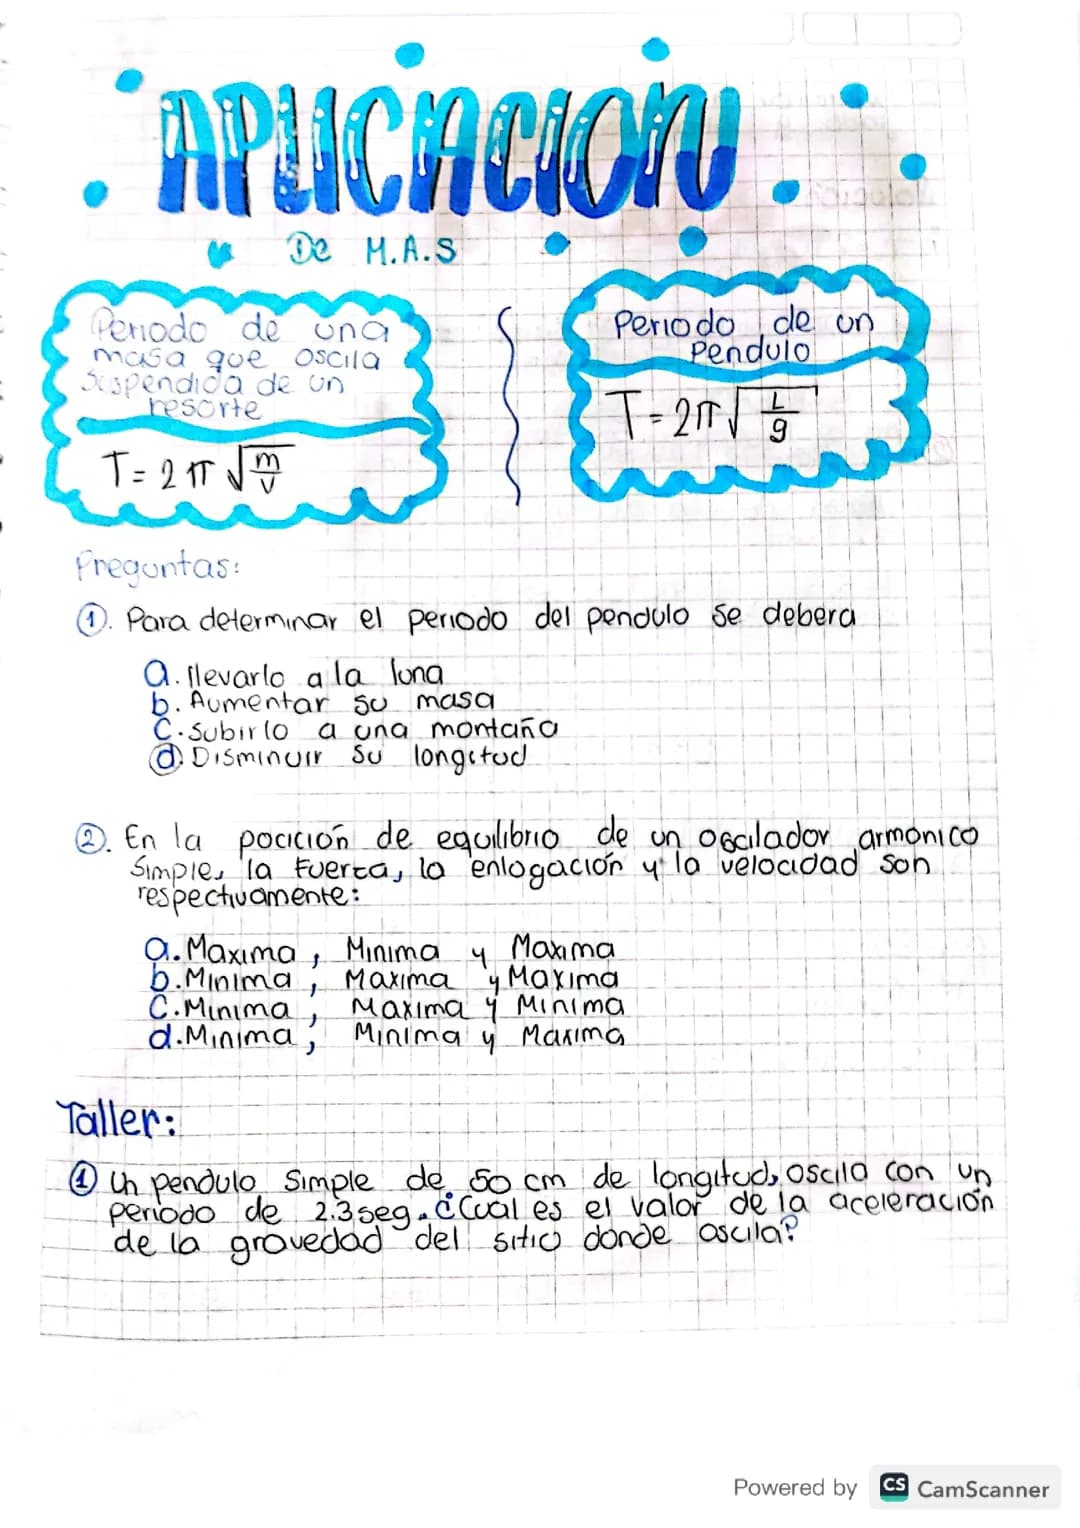 APLICACION
De M.A.S
Periodo de una
masa que oscila
Suspendida de un
resorte
T = 2 π √m/v
Periodo de un
Pendulo
T = 2π √L/g
Preguntas:
1. Para determinar el periodo del pendulo se debera
a. llevarlo a la luna
b. Aumentar su masa
C. Subirlo a una montaña
d. Disminuir su longitud
2. En la pocición de equilibrio de un oscilador armónico
Simple, la fuerza, la enlogación y la velocidad son
respectivamente:
a. Maxima, Minima y Maxima
b. Minima, Maxima y Maxima
C. Minima, Maxima y Minima
d. Minima, Minima y Maxima
Taller:
1 Un pendulo Simple de 50 cm de longitud, oscila con un
periodo de 2.3 seg. ¿Cual es el valor de la aceleración
de la gravedad del sitio donde oscila?
Powered by CS CamScanner